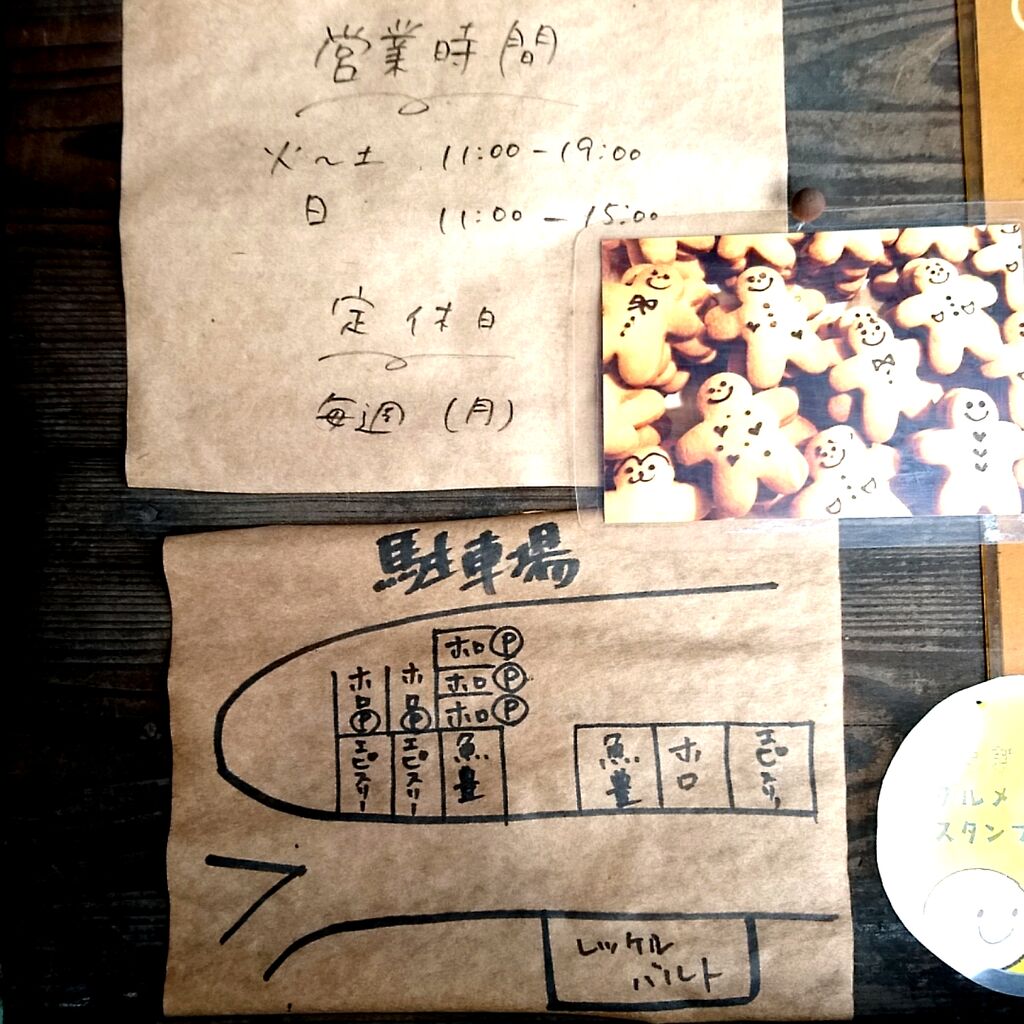 営業時間
火〜土 11:00-19:00
日 11:00-15:00
定休日
毎週(月)
駐車場
ホロⓅ
ホロⓅ
ホロⓅ
ホロⓅ
ホロⓅ
エピスリー
エピスリー
魚豊
魚豊
ホロ
エピスリー
レッケル
バルト
グルメ
スタンプ